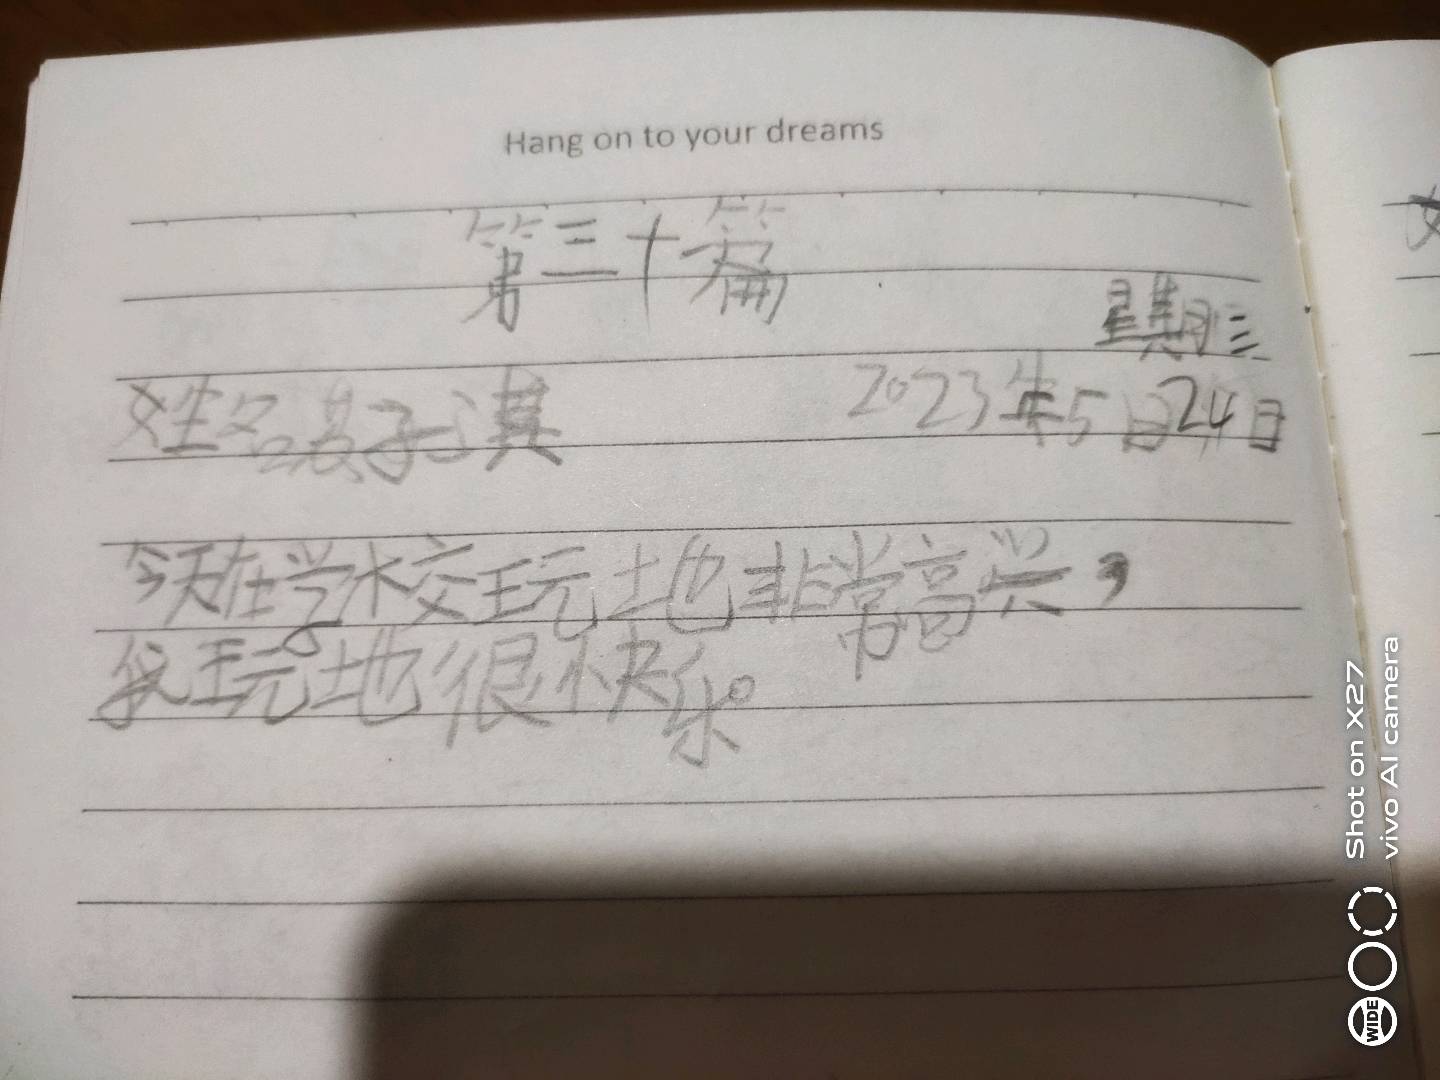 Hang on to your dreams
第三十篇
星期三
姓名:苏子淇
2023年5日24日
今天在学校玩地非常高兴,
我玩地很快乐。
Shot on X27
vivo AI camera
WIDE